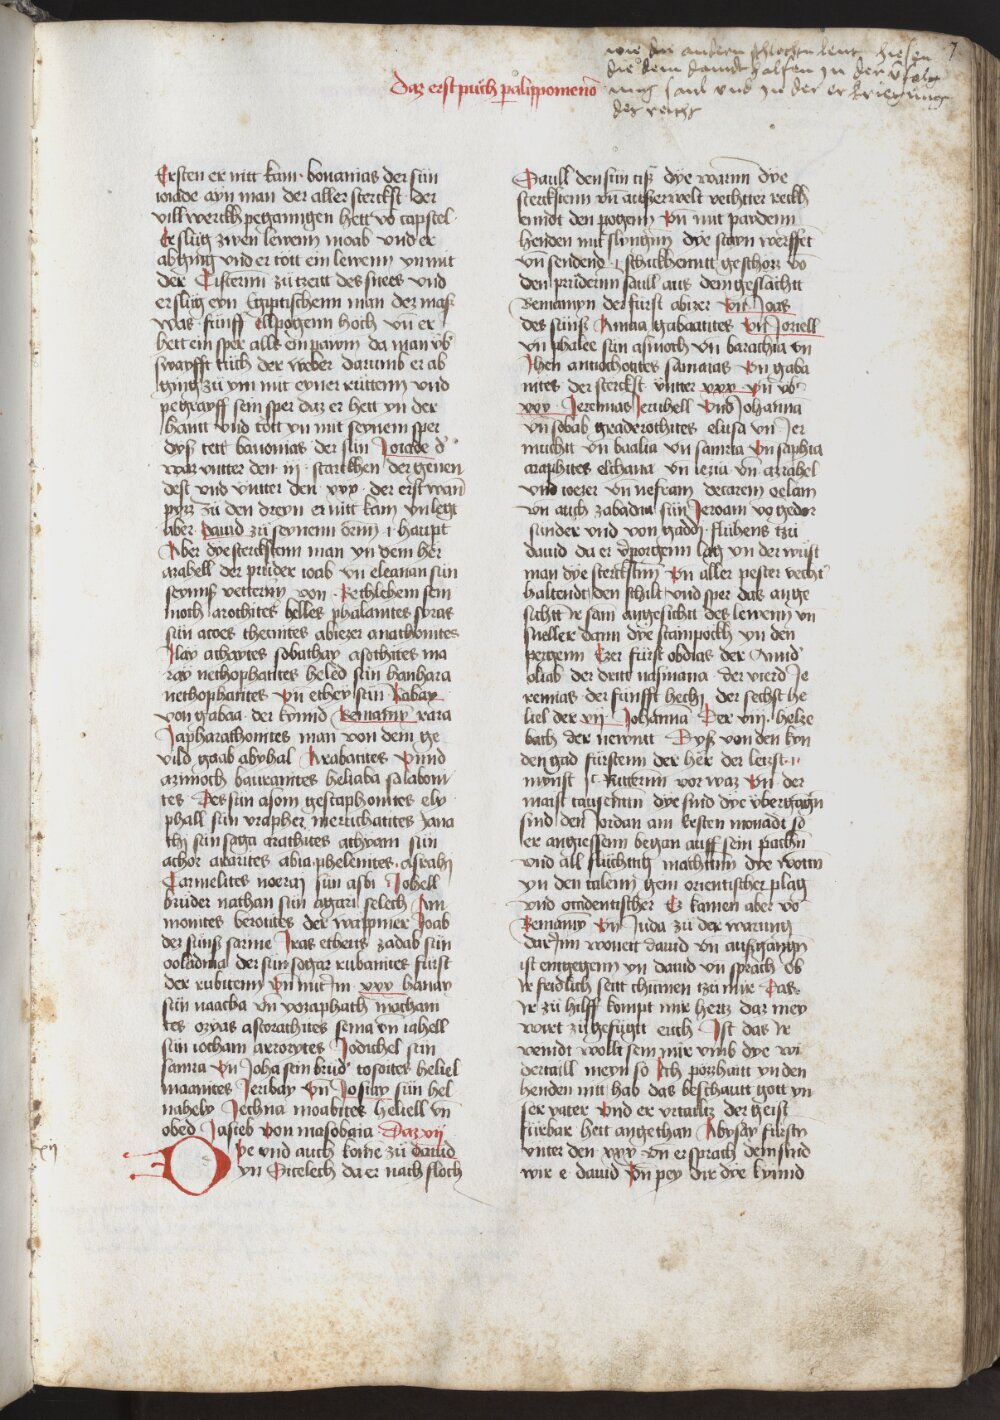 7
wie die andern schlechten leut hiesen
die dem dauidt halfen Jn der vfolg
ung saul vnd Jn der er kriegung
des reichs
Daz erst půch paralippomenon
Ersten er nitt kam · bonanias der sun
ioiade ayn man der aller sterckst der
vill werckh pegangen hett vo capsteel
Er slůg zwen lewenn moab vnd er
abging vnd er tott ein lewenn yn mit
der Cisternn zů tzeitt des snees vnd
er slůg eyn Egiptischenn man der maß
was · funff ellpogenn hoch vn er
hett ein sper alls ein pawm da man vb
swayfft tuch der weber darumb er ab
ging zu ym mit eyner ruttenn vnd
pegrayff sein sper daz er hett yn der
hantt vnd tott yn mit seynem sper
dyß tett banonias · der sun Joiade d
war vntter den iij · starckhen der genen
dest vnd vntter den xxx · der erst wan
pyzz zu den dreyn er nitt kam yn legt
aber dauid zů seynenn ornn · haupt
Aber dye sterckstenn man yn dem her
azahell der průder ioab vn eleanan sun
seyniß vettern von · Bethlehem sem
moth arothites helles phalanites hyras
sun acces thecuites abiezer anathonites
Jlay athoytes sobathay asothites ma
ray nethophatites heled sun banhara
nethophatites Vn ethey sun Rabay
von gabaa · der kynnd Bemamyn rara
Japharathonites man von dem ge
vild gaab abyhal Arabatites Vnnd
azimoth bauranites heliaba salaboni
tes Des sun asom gesraphonites ely
phall sun vrapher merrichatites Jana
thi sun saga arathites athyam sun
achor ararites abia phelenites · asrahi
Carmelites noeray sun asbi Johell
brůder nathan sun agari selech Am
monites beronites der wappner Joab
der sunß sarnie Jras ethens zadab sun
ooladma der sun sagar rubanites furst
der rubitenn Vn mit Jm xxx hanan
sun naacha vn yozaphath mocham
tes ozyas astorathites sema vn iahell
sun iocham arrorytes Jodichel sun
samra Vn Joha sein brůd tosoites heliel
maanites Jeribay Vn Josuay sun hel
nahely Jethna moabites heliell vn
obed Jasieb von masobaia · Daz xij
xij
Dye vnd auch kome zů dauid
yn Sicelech da er nach floch
Saull den sun ciß dye warnn dye
sterckstenn vn außerwelt vechtter reckh
ennidt den pogenn Vn mit paydenn
henden mit slyngnn dye stayn werffet
vn sendend · schickhenntt geschoz vo
den průdernn saull auß dem geslächtt
Bemamyn der fůrst abizer Vn Joas
des sunß Amaa gabaatites Vn Joziell
vn phalee sun asmoth vn barachia vn
Jhen antiochoytes samaias Vn gaba
nites der sterckst vntter xxx Vn vb
xxx Jeremias Jerubell Vnd Johanna
vn sobab graderothites elusa vn Jer
muchtt vn baalia vn samria Vn saphita
araphites elchana vn iezia vn azrahel
vnd ioezer vn nefram decarem oelam
vn auch zabadia sun Jeroam vo gedor
sunder vnd von gaddy fluhens tzů
dauid da er vporgenn lag yn der wůst
man dye sterckstnn Vn aller pester vecht
haltendt den schilt vnd sper das ange
sichtt Jr sam angesichtt des lewenn vn
sneller dann dye stampockh yn den
pergenn Ezer fůrst obdias der Annd
oliab der dritt nasmana der vierd Je
remias · der funfft hechi der sechst he
liel der vij Johanna Der viij · helze
bath der newntt Dyß von den kyn
den gad furstenn der her der letzst ·
mynst · c Ritternn vor waz Vn der
maist tausenttn dye sind dye vbergagn
sind den Jordan am ersten monadt so
er angiessenn began auff sein pachn
vnd all fluchtig machtnn dye wontn
yn den talenn gem orientischer plag
vnd occidentischer Es kamen aber vo
Bemamy Vn Juda zů der warung
dar Jnn wonett dauid vn außgangn
ist entgegenn yn dauid vn sprach ob
Jr fridlich seitt chumen tzů mir Das
Jr zu hilff kompt mir hertz daz mey
wirt zů gefugtt euch Jst das Jr
venidt wollt sein mir vmb dye wi
dertaill meyn so Jch pozzhaitt yn den
henden nitt hab das beschautt gott vn
ser vater Vnd er vrtailtz der geist
furbar hett angethan Abysay fursty
vnter den xxx vn er sprach dein sind
wir e · dauid Vn pey dir dye kynnd